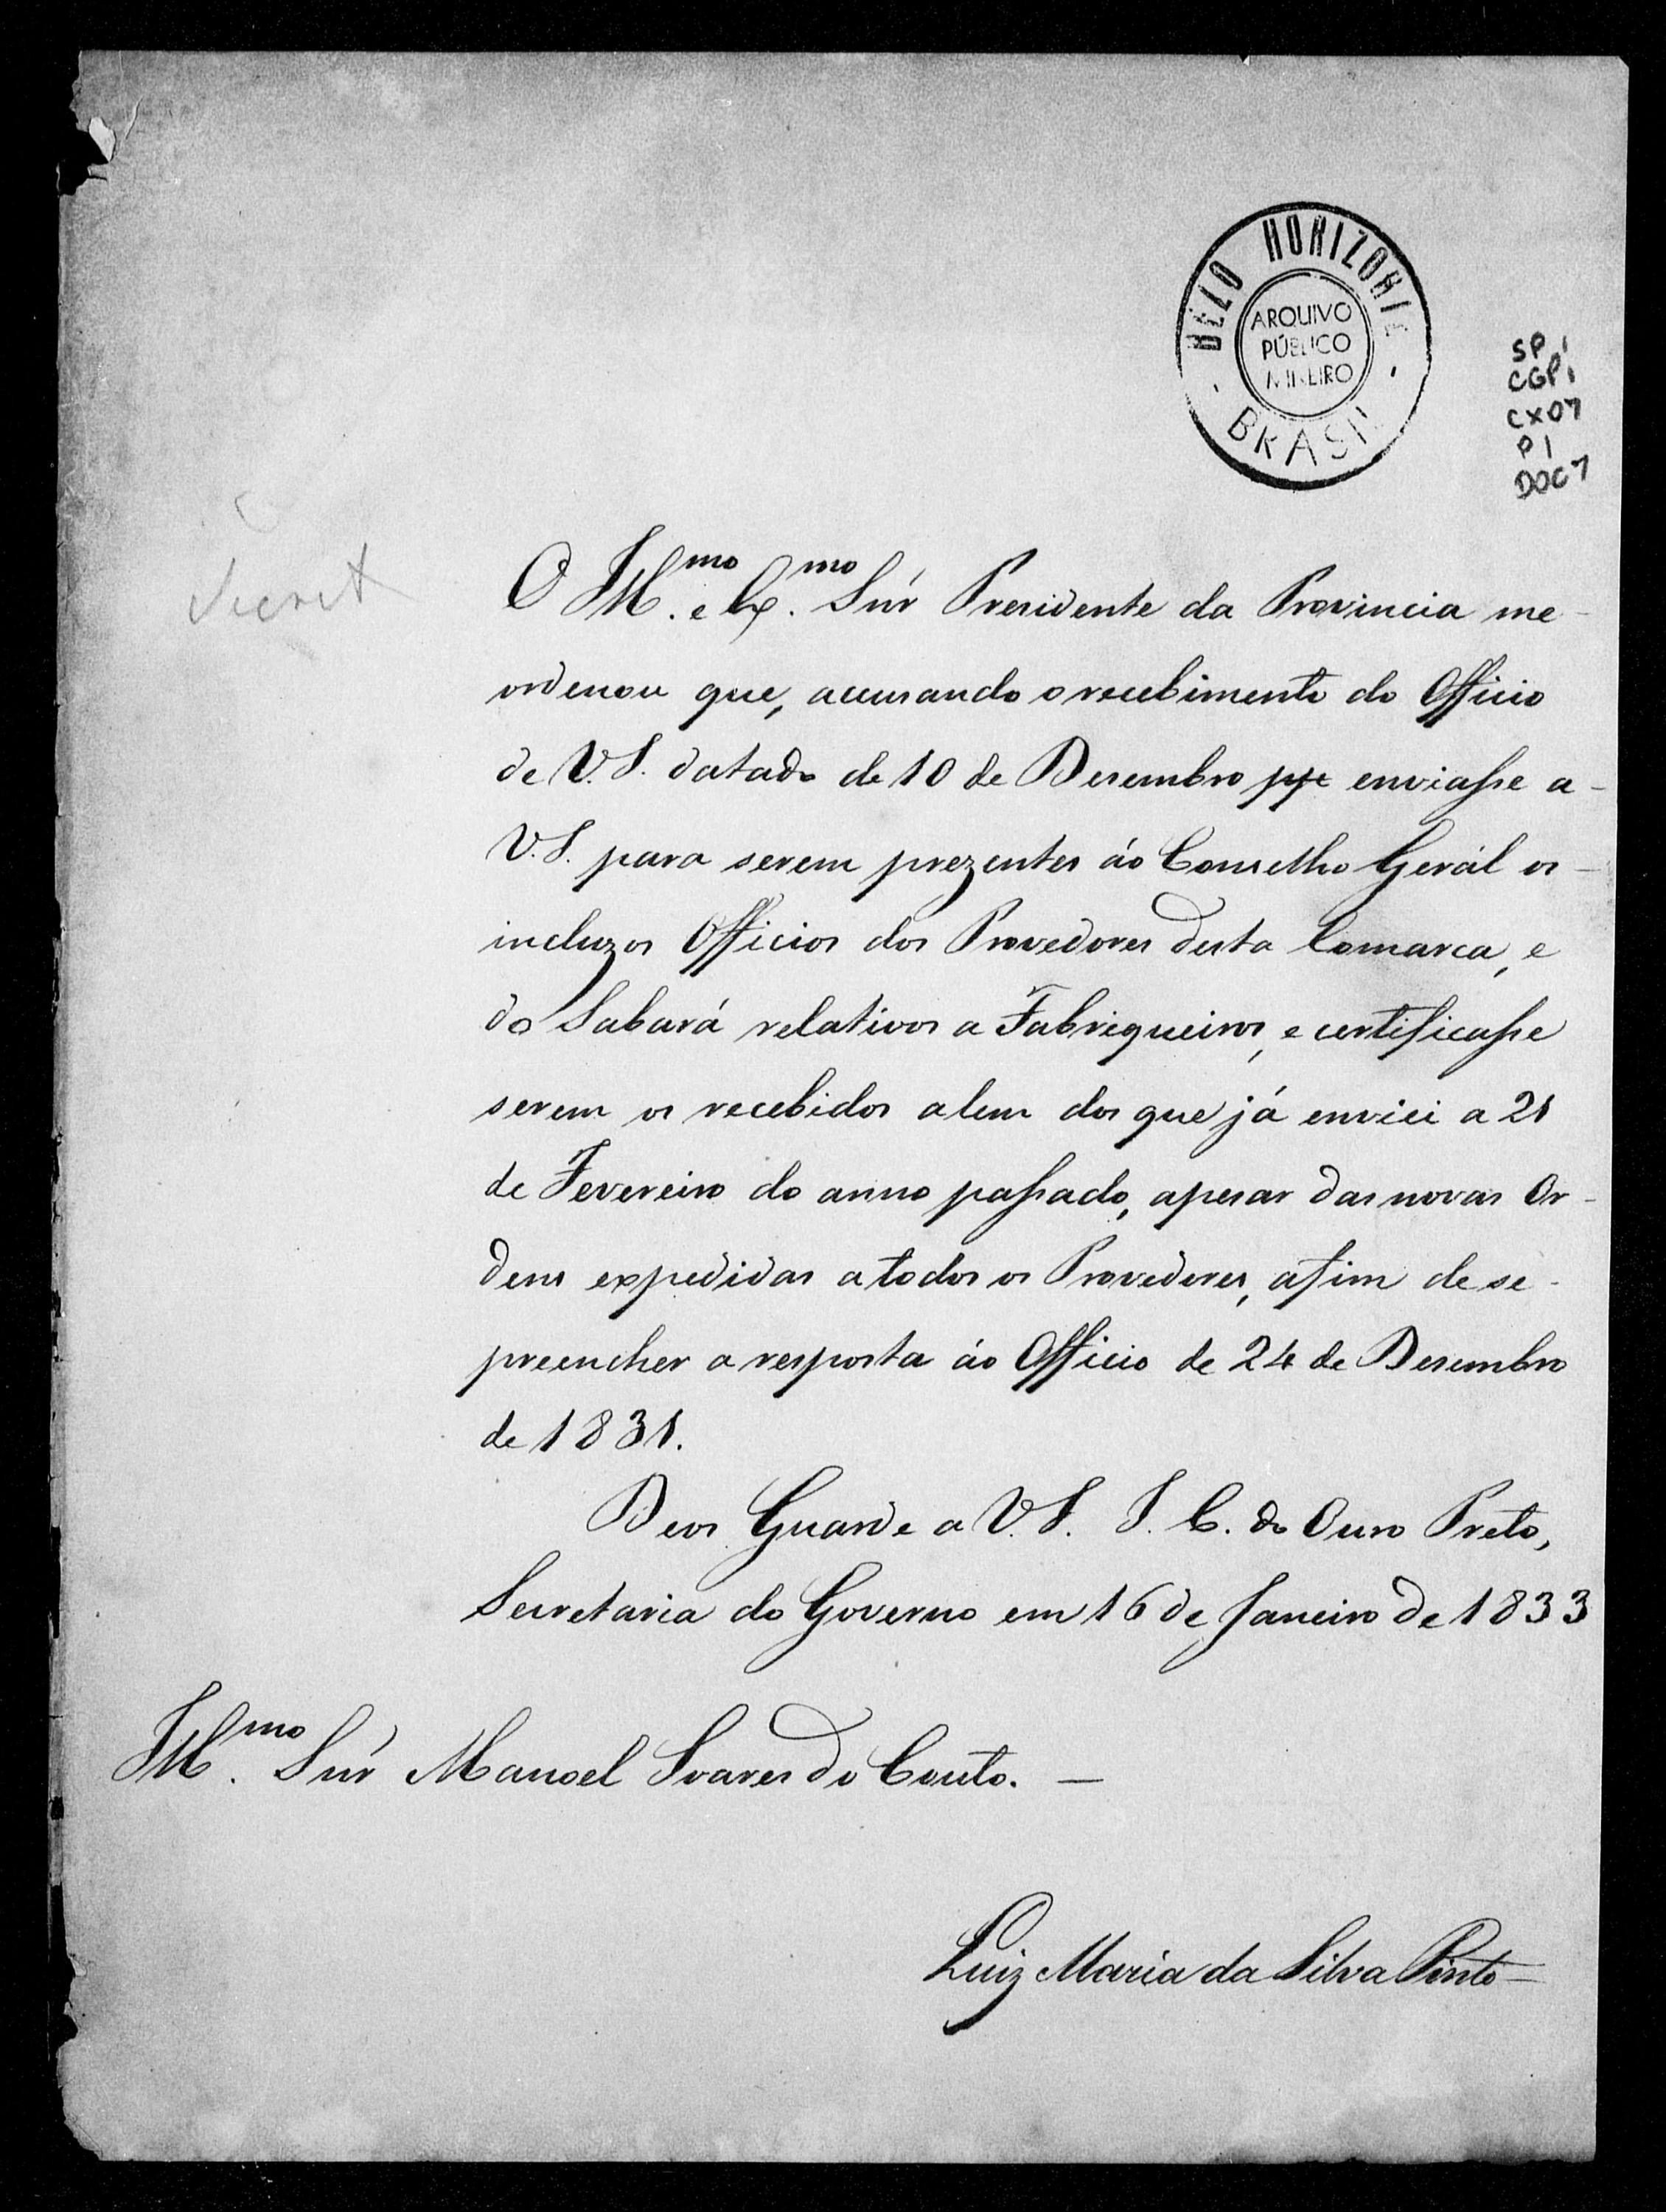 BELO HORIZONTE
ARQUIVO
PÚBLICO
MINEIRO
BRASIL
SP 1
CGP 1
CX07
P1
DOC 7
Secret
O Ill.mo e Ex.mo Snr̃ Presidente da Provincia me
ordenou que, accusando o recebimento do Officio
de V.S. datado de 10 de Desembro pp enviasse a
V.S. para serem prezentes áo Conselho Gerál os
incluzos Officios dos Provedores desta Comarca, e
do Sabará relativos a Fabriqueiros, e certificasse
serem os recebidos alem dos que já enviei a 21
de Fevereiro do anno passado, apesar das novas Or-
dens expedidas a todos os Provedores, afim de se
preencher a resposta áo Officio de 24 de Desembro
de 1831.
Deos Guarde a V.S. I. C. do Ouro Preto,
Secretaria do Governo em 16 de Janeiro de 1833
Ill.mo Snr̃ Manoel Soares do Couto. —
Luiz Maria da Silva Pinto